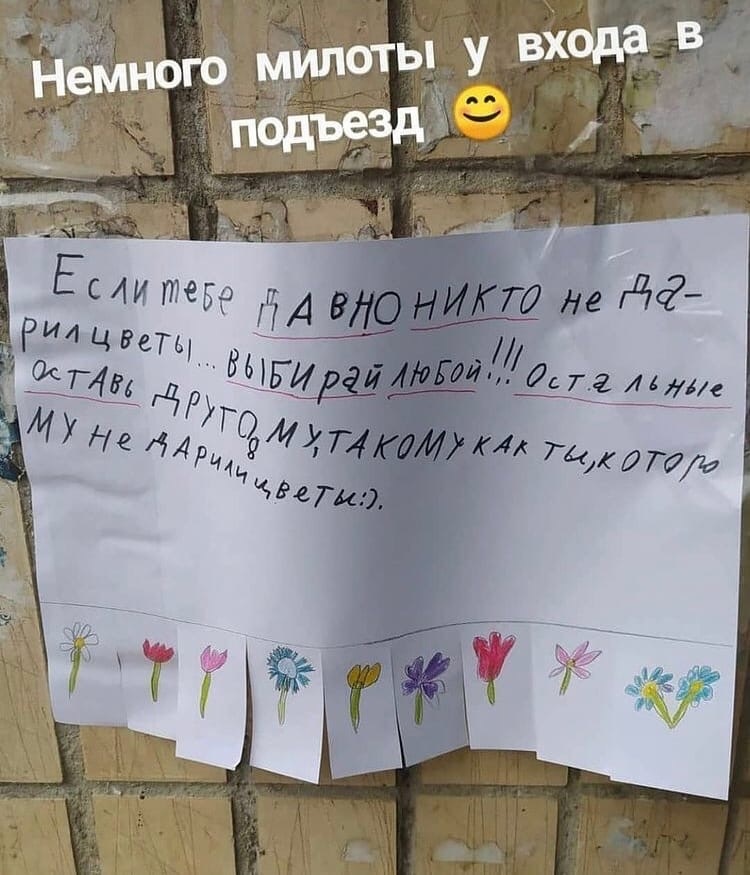 Немного милоты у входа в
подъезд 😊
Если тебе давно никто не да-
рил цветы... выбирай любой!!! Остальные
оставь другому, такому как ты, которо
му не дарили цветы:).